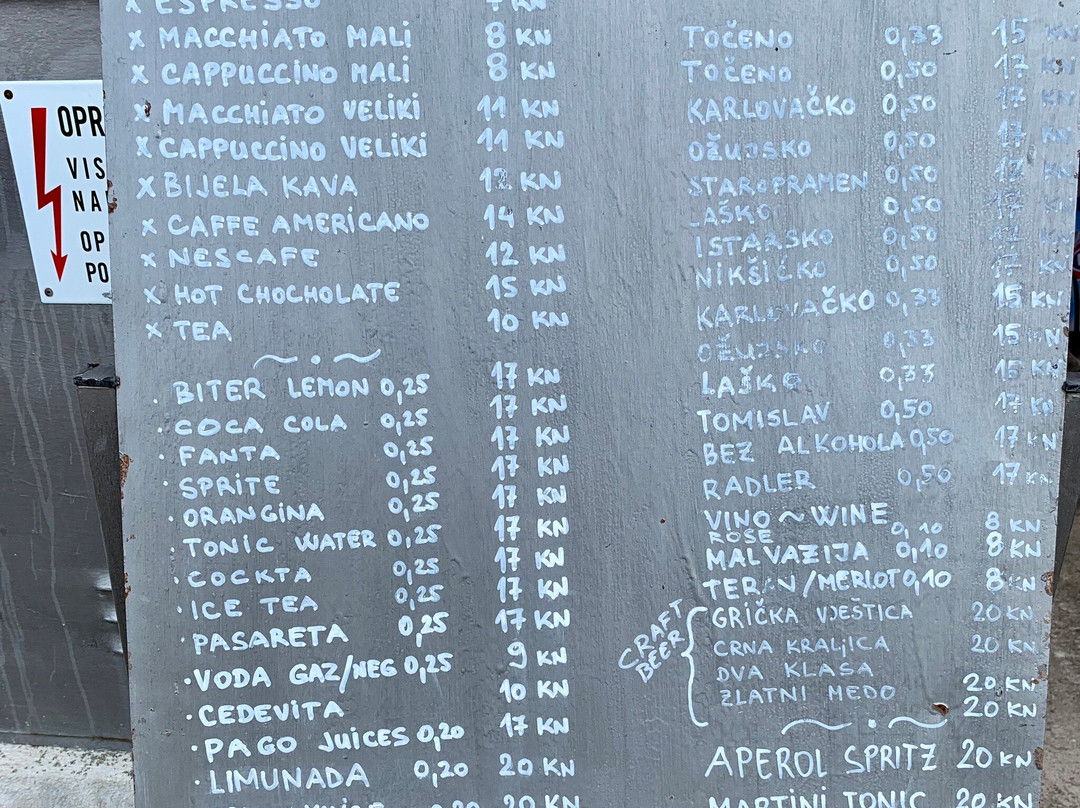 OPR
VIS
NA
OP
PO
x ESPRESSO 7 KN
x MACCHIATO MALI 8 KN
x CAPPUCCINO MALI 8 KN
x MACCHIATO VELIKI 11 KN
x CAPPUCCINO VELIKI 11 KN
x BIJELA KAVA 12 KN
x CAFFE AMERICANO 14 KN
x NESCAFE 12 KN
x HOT CHOCHOLATE 15 KN
x TEA 10 KN
· BITER LEMON 0,25 17 KN
· COCA COLA 0,25 17 KN
· FANTA 0,25 17 KN
· SPRITE 0,25 17 KN
· ORANGINA 0,25 17 KN
· TONIC WATER 0,25 17 KN
· COCKTA 0,25 17 KN
· ICE TEA 0,25 17 KN
· PASARETA 0,25 17 KN
· VODA GAZ/NEG 0,25 9 KN
· CEDEVITA 10 KN
· PAGO JUICES 0,20 17 KN
· LIMUNADA 0,20 20 KN
0,20 20 KN
TOČENO 0,33 15 KN
TOČENO 0,50 17 KN
KARLOVAČKO 0,50 17 KN
OŽUJSKO 0,50 17 KN
STAROPRAMEN 0,50 17 KN
LAŠKO 0,50 17 KN
ISTARSKO 0,50 17 KN
NIKŠIĆKO 0,50 17 KN
KARLOVAČKO 0,33 15 KN
OŽUJSKO 0,33 15 KN
LAŠKO 0,33 15 KN
TOMISLAV 0,50 17 KN
BEZ ALKOHOLA 0,50 17 KN
RADLER 0,50 17 KN
VINO ~ WINE
ROSE 0,10 8 KN
MALVAZIJA 0,10 8 KN
TERAN/MERLOT 0,10 8 KN
CRAFT BEER
GRIČKA VJEŠTICA 20 KN
CRNA KRALJICA 20 KN
DVA KLASA 20 KN
ZLATNI MEDO 20 KN
APEROL SPRITZ 20 KN
MARTINI TONIC 20 KN